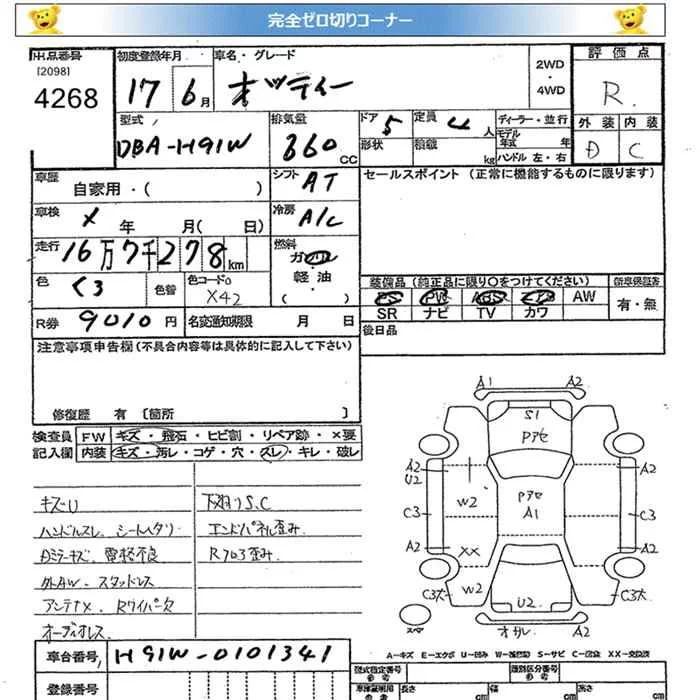 完全ゼロ切りコーナー
出品番号
[2098]
4268
初度登録年月
17 6月
車名・グレード
オッティ
2WD
・
4WD
評価点
R
外装 内装
D C
型式
DBA-H91W
排気量
660
CC
ドア 5
定員 4 人
形状
積載 kg
ディーラー・並行
モデル
年式 年
ハンドル 左・右
車歴
自家用・( )
シフト AT
冷房 A/C
セールスポイント (正常に機能するものに限ります)
車検 X 年 月( 日)
走行 16万7千278km
燃料
ガソリン
・
軽油
・
( )
色 クロ
色替
色コードNo
X42
装備品 (純正品に限り○をつけてください)
PS PW ABS エアB AW
SR ナビ TV カワ
新車保証書
有・無
R券 9010円
名変通知期限 月 日
後日品
注意事項申告欄(不具合内容等は具体的に記入して下さい)
修復歴 有 [箇所 ]
検査員
記入欄
FW キズ・飛石・ヒビ割・リペア跡・×要
内装 キズ・汚レ・コゲ・穴・スレ・キレ・破レ
キズU
ハンドルスレ、シートヘタリ
Dミラーキズ、電格不良
外AW、スタッドレス
アンテナX、Rワイパー欠
オーディオレス
下廻りS.C
エンドパネル歪み
Rフロア歪み
A1 A2
S1
Pアセ
A2
U2
A2
W2
Pアセ
A1
C3
C3
A2
A2
XX
W2
C3大
C3大
U2
スペア
オサレ
A2
A-キズ E-エクボ U-凹み W-補修跡 S-サビ C-腐食 XX-交換済
車台番号 H91W-0101341
登録番号
型式指定番号
類別区分番号
車庫証明用
長さ cm
幅 cm
高さ cm